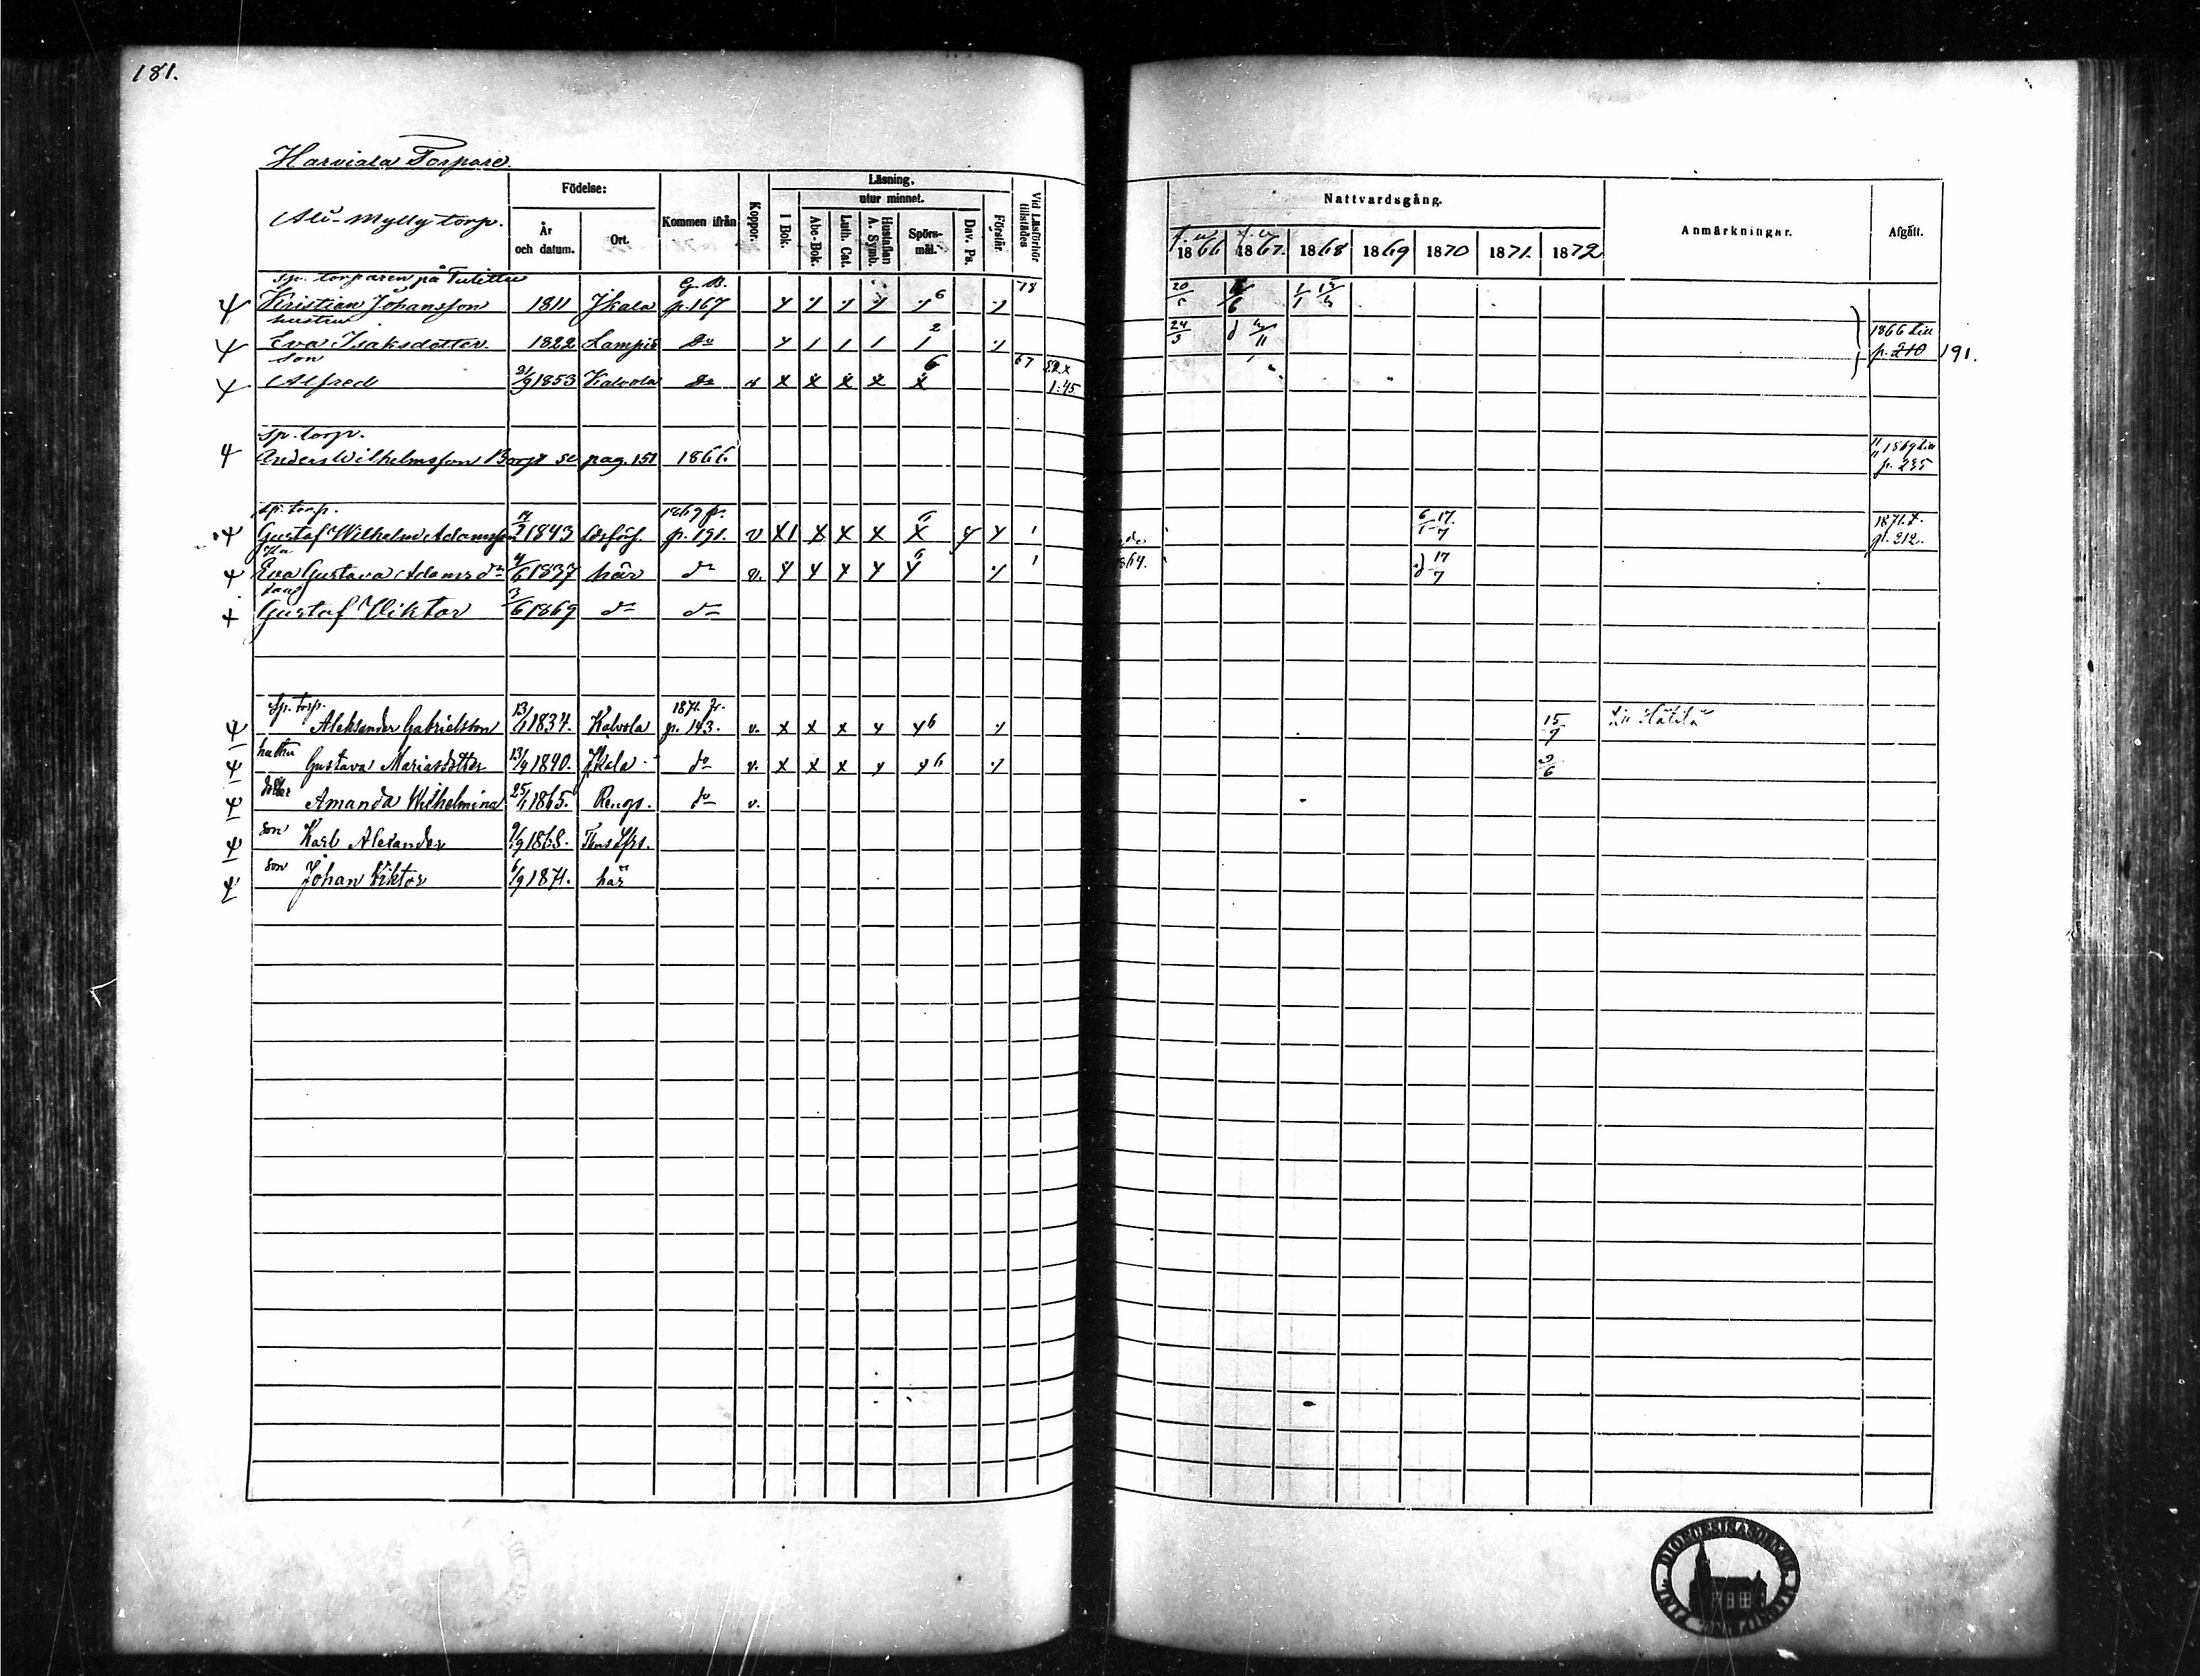 181.
Harviala Torpare.
Ala-Mylly torp.
Födelse:
År och datum.
Ort.
Kommen ifrån
Koppor.
Läsning.
I Bok.
utur minnet.
Abc-Bok.
Luth. Cat.
Hustaflan A. Symb.
Spörsmål.
Dav. Ps.
Förstår
Vid Läsförhör tillstädes
Nattvardsgång.
1866 1867. 1868 1869 1870 1871. 1872
Anmärkningar.
Afgått.
sp. torparen på G. B. 78 20 12/6
Kristian Johansson 1811 Jkala p. 167 6
hustru 2 24/3 1866 till
Eva Isaksdotter 1822 Lampis Do p. 210 191.
son 6 67
Alfred 21/9 1853 Kalvola do v x x x x x 1:45
sp. torp. 1869 till
Anders Wilhelmsson Borg se pag. 151 1866. p. 235
sp. torp. 1869 fr. 6 17/7 1871 t.
Gustaf Wilhelm Adamsson 1843 p. 191. v x1 x x x x 1 p. 212.
Eva Gustava Adamsdr 4/6 1837 här do v. 1 64. 17/7
Gustaf Viktor 3/6 1869 do do
Sp. torp. 1871 fr.
Aleksander Gabrielsson 13/1 1834. Kalvola p. 143. v. x x x x x 6 15/9 till Hätilä
hustru Gustava Mariasdotter 13/9 1840. Jkala do v. x x x x x 6 2/6
dotter Amanda Wilhelmina 25/1 1865. Rengo. do v.
son Karl Alexander 9/9 1868. Tens Lfrs.
son Johan Viktor 6/9 1871. här